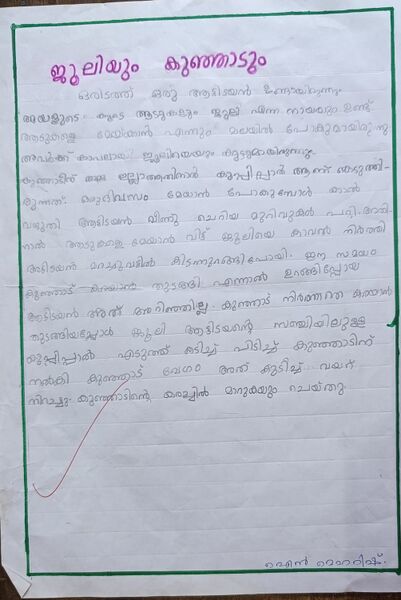 ജൂലിയും കുഞ്ഞാടും
ഒരിടത്ത് ഒരു ആട്ടിടയൻ ഉണ്ടായിരുന്നു
അയാളുടെ കൂടെ ആടുകളും ജൂലി എന്ന നായയും ഉണ്ട്
ആടുകളെ മേയ്ക്കാൻ എന്നും മലയിൽ പോകുമായിരുന്നു
അവർക്ക് കാവലായി ജൂലിയെയും കൂട്ടുമായിരുന്നു.
കുഞ്ഞാടിന് അമ്മ ഇല്ലാത്തതിനാൽ കുപ്പിപ്പാൽ ആണ് കൊടുത്തി-
രുന്നത്. ഒരുദിവസം മേയാൻ പോകുമ്പോൾ കാൽ
വഴുതി ആട്ടിടയൻ വീണു ചെറിയ മുറിവുകൾ പറ്റി. അതി-
നാൽ ആടുകളെ മേയാൻ വിട്ട് ജൂലിയെ കാവൽ നിർത്തി
ആട്ടിടയൻ മരച്ചുവട്ടിൽ കിടന്നുറങ്ങിപോയി. ഈ സമയം
കുഞ്ഞാട് കരയാൻ തുടങ്ങി എന്നാൽ ഉറങ്ങിപ്പോയ
ആട്ടിടയൻ അത് അറിഞ്ഞില്ല. കുഞ്ഞാട് നിർത്താതെ കരയാൻ
തുടങ്ങിയപ്പോൾ ജൂലി ആട്ടിടയന്റെ സഞ്ചിയിലുള്ള
കുപ്പിപ്പാൽ എടുത്ത് കടിച്ച് പിടിച്ച് കുഞ്ഞാടിന്
നൽകി കുഞ്ഞാട് വേഗം അത് കുടിച്ച് വയറ്
നിറച്ചു. കുഞ്ഞാടിന്റെ കരച്ചിൽ മാറുകയും ചെയ്തു.